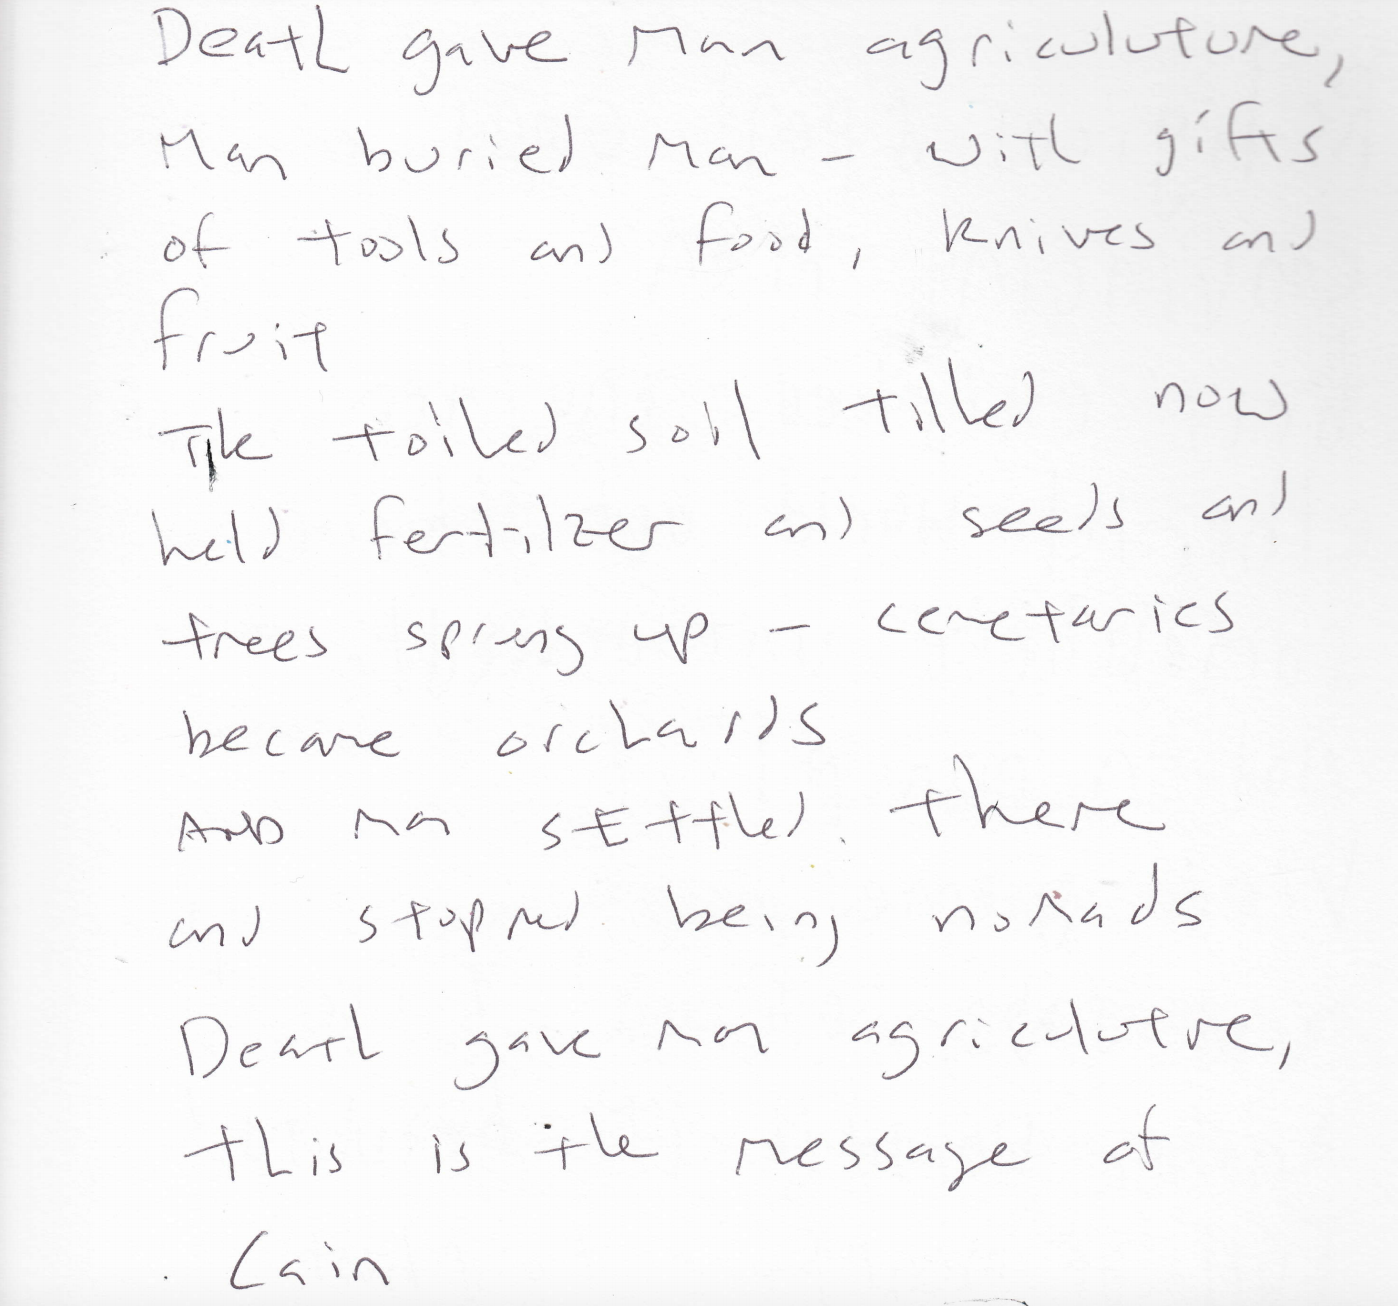 Death gave Man agriculuture,
Man buried Man - with gifts
of tools and food, knives and
fruit
The toiled soil tilled now
held fertilzer and seeds and
trees sprung up - cemetaries
became orchards
AND man sEttled there
and stopped being nomads
Death gave man agriculutre,
this is the message of
Cain